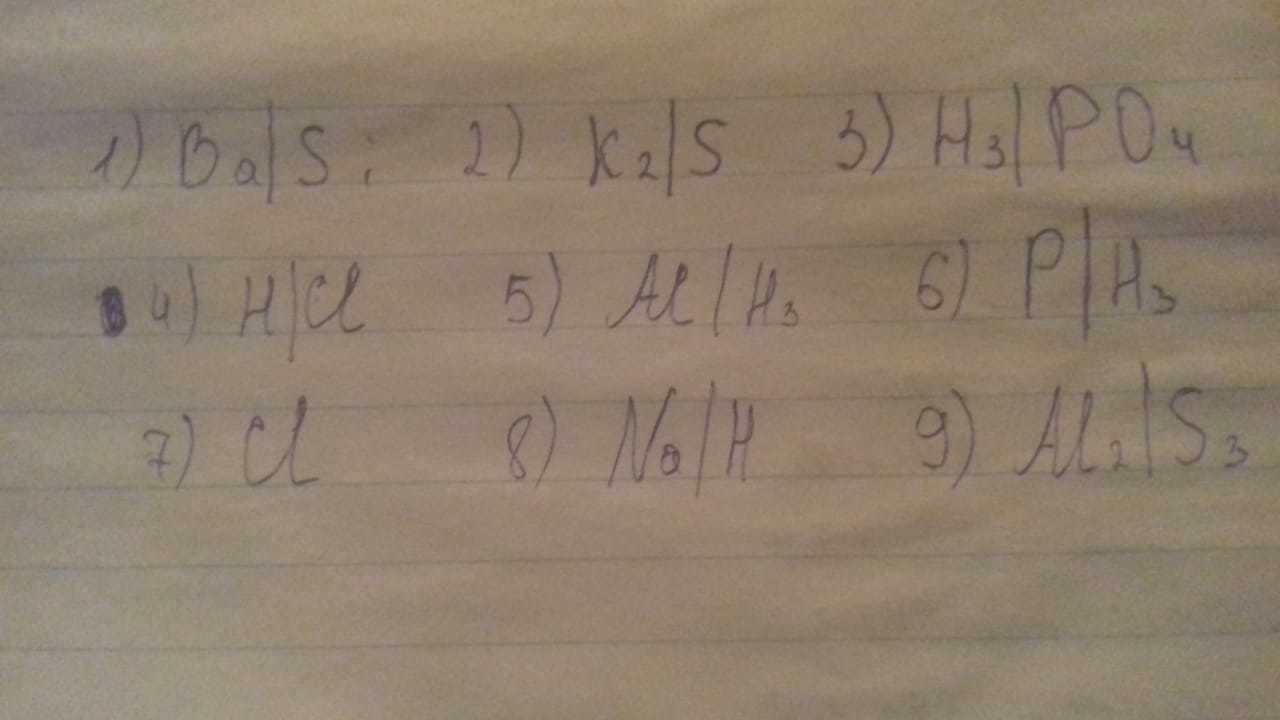 1) Ba|S; 2) K₂|S 3) H₃|PO₄
4) H|Cl 5) Al|H₃ 6) P|H₃
7) Cl 8) Na|H 9) Al₂|S₃